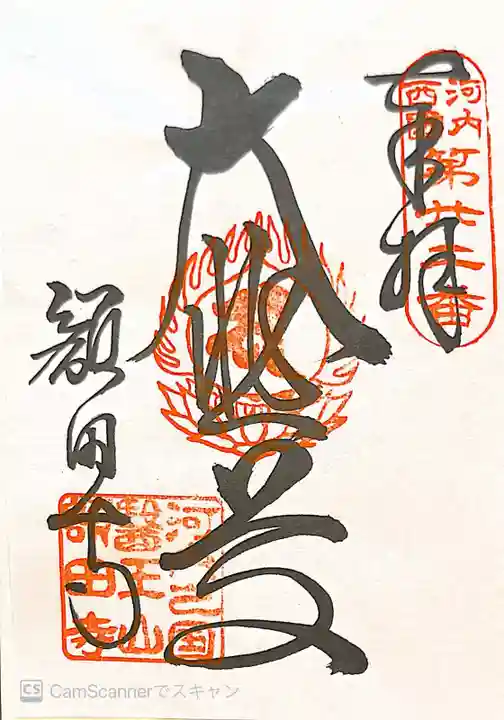 奉拝
河内
西國
第廿二番
大悲
額田寺
河内国
醫王山
額田寺
CS CamScannerでスキャン